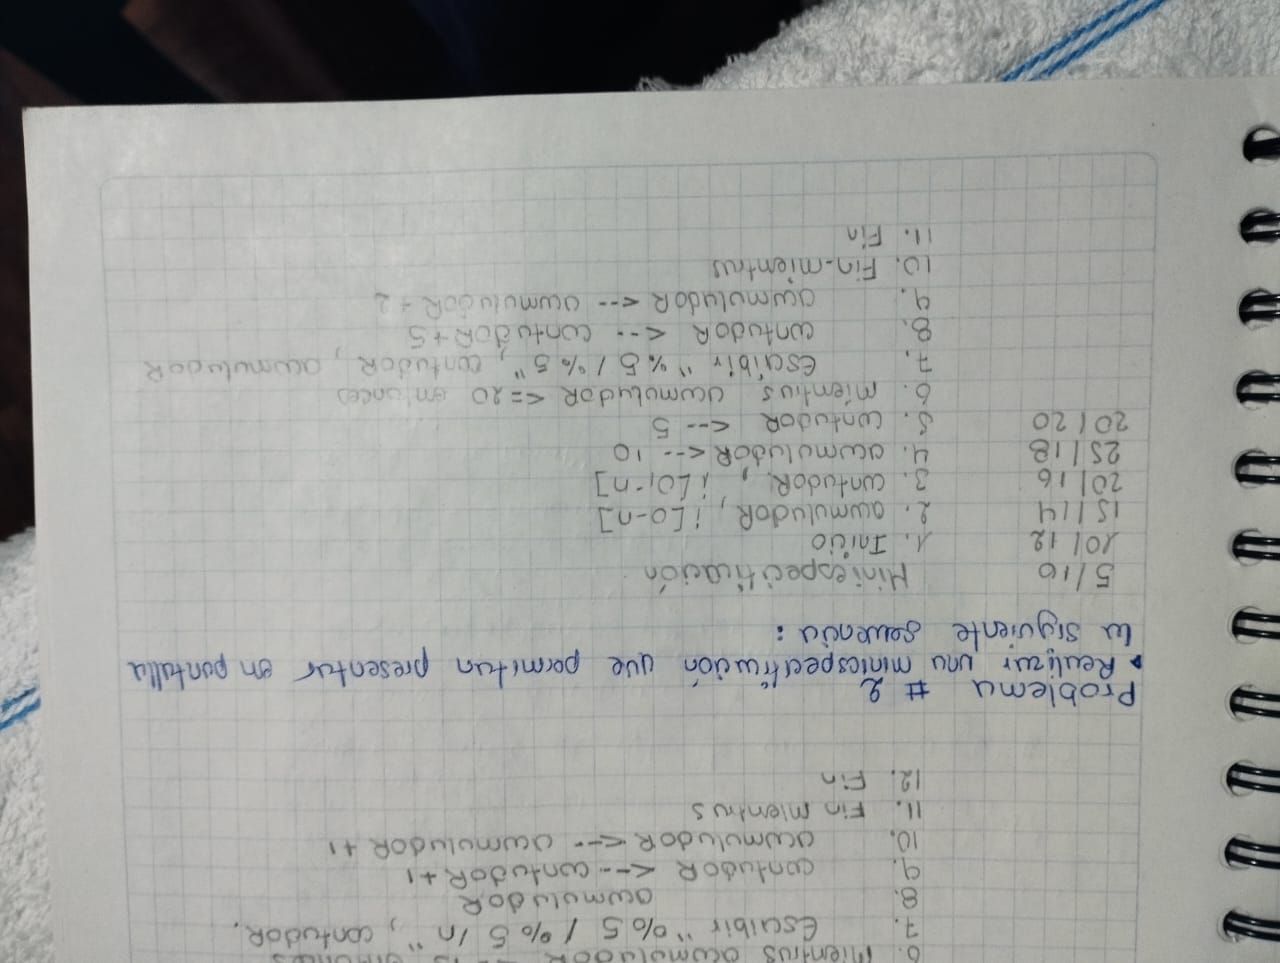 6. Mientras acumulador
7. Escribir "%5 / %5 /n", contador,
8. acumulador
9. contador <-- contador+1
10. acumulador <-- acumulador +1
11. Fin mientras
12. Fin
Problema # 2
• Realizar una miniespecificación que permitan presentar en pantalla
la siguiente secuencia:
5/10 Miniespecificación
10/12 1. Inicio
15/14 2. acumulador, i[0-n]
20/16 3. contador, i[0,-n]
25/18 4. acumulador <-- 10
20/20 5. contador <-- 5
6. mientras acumulador <=20 entonces
7. Escribir "%5 / %5", contador, acumulador
8. contador <-- contador+5
9. acumulador <-- acumulador + 2
10. Fin-mientras
11. Fin